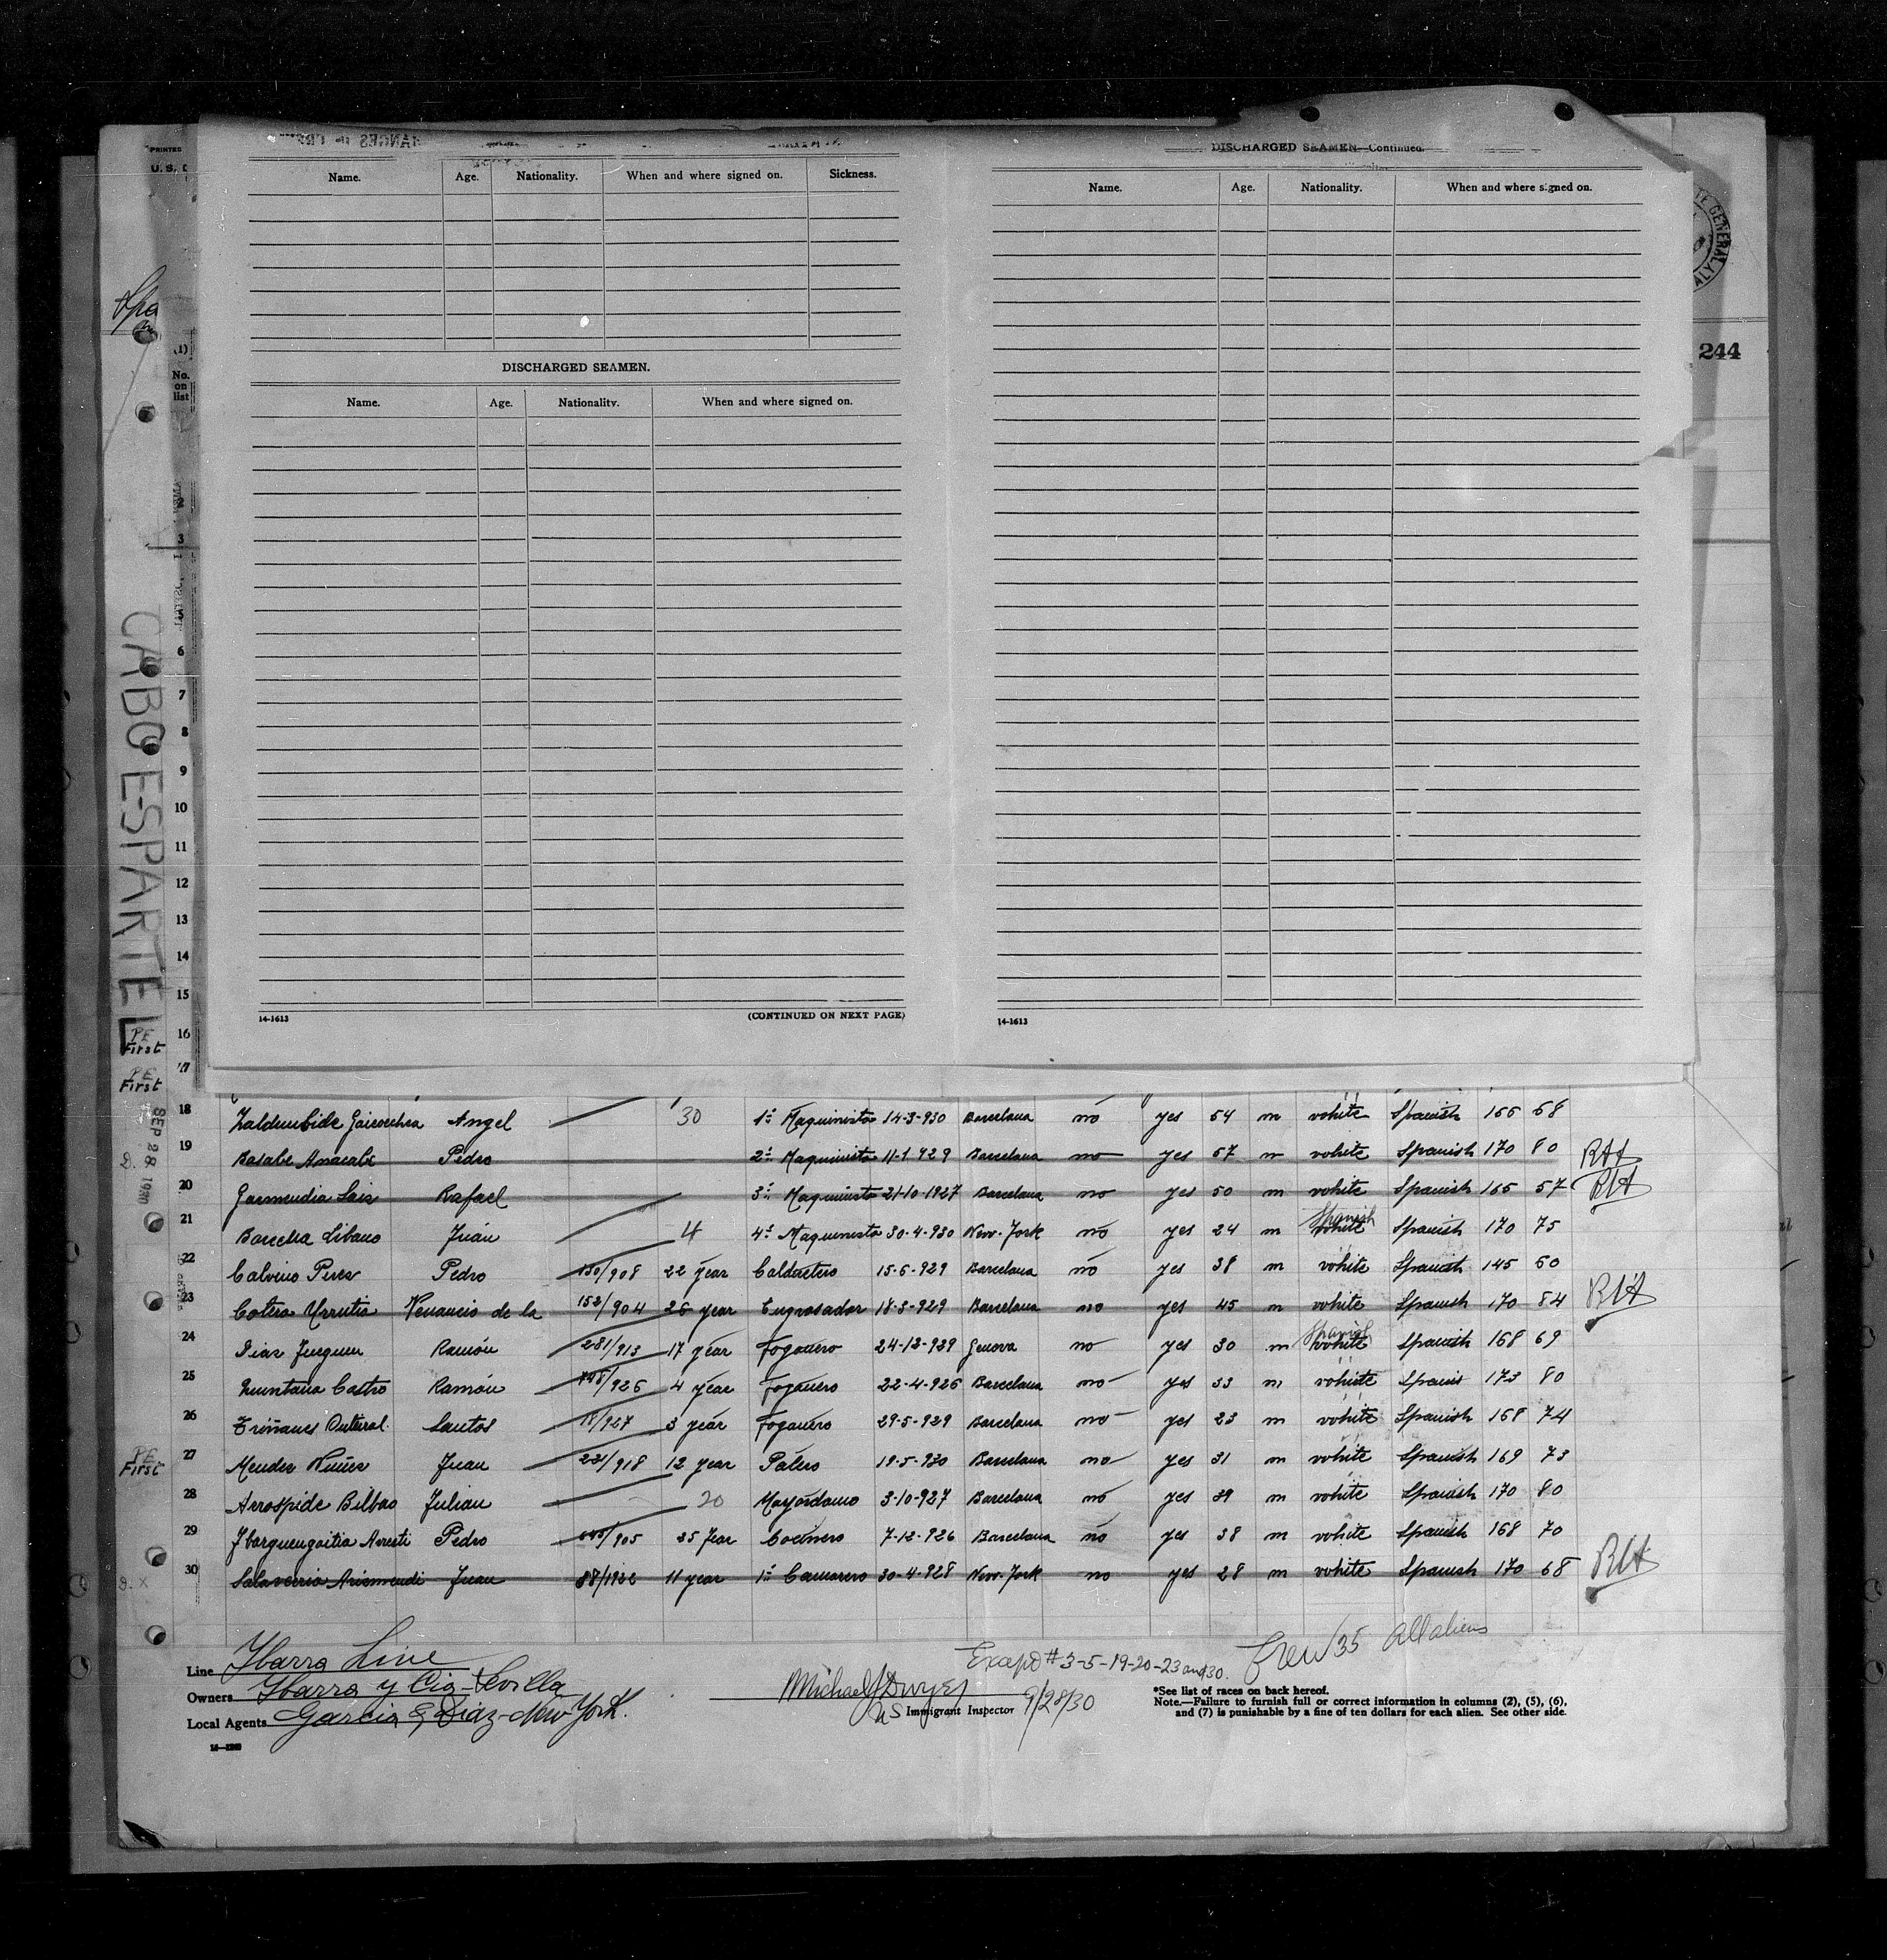 PRINTED
U. S.
DISCHARGED SEAMEN—Continued.
Name. Age. Nationality. When and where signed on. Sickness.
Name. Age. Nationality. When and where signed on.
244
(1)
No.
on
list
DISCHARGED SEAMEN.
Name. Age. Nationality. When and where signed on.
2
3
6
7
8
9
10
11
12
13
14
15
CABO ESPARTEL
14-1613 (CONTINUED ON NEXT PAGE) 14-1613
PE First 16
PE First 17
SEP 28 1930
18 Angel 30 1º Maquinista 14-3-930 Barcelona no yes 54 m white Spanish 165 68
D. 19 Basabe Pedro 2º Maquinista 11-1-929 Barcelona no yes 57 m white Spanish 170 80 RH
20 Garmendia Rafael 3º Maquinista 21-10-1927 Barcelona no yes 50 m white Spanish 165 57 RH
21 Juán 4 4º Maquinista 30-4-930 New-York no yes 24 m white Spanish Spanish 170 75
22 Calvino Pedro 150/908 22 year 15-6-929 Barcelona no yes 38 m white Spanish 145 60
23 Cotera Urrutia Venancio de la 152/904 26 year Engrasador 18-3-929 Barcelona no yes 45 m white Spanish 170 84 RH
24 Dias Ramón 281/913 17 year Fogonero 24-12-929 Genova no yes 30 m white Spanish Spanish 168 69
25 Quintana Castro Ramón 926 4 year Fogonero 22-4-926 Barcelona no yes 33 m white Spanis 173 80
26 Triñanes Santos 927 3 year Fogonero 29-5-929 Barcelona no yes 23 m white Spanish 168 74
PE First 27 Mendez Nuñez Juan 918 12 year Palero 19-5-930 Barcelona no yes 31 m white Spanish 169 73
28 Arrospide Bilbao Julian 20 Mayordomo 3-10-927 Barcelona no yes 39 m white Spanish 170 80
29 Ibarguengoitia Arresti Pedro 905 25 Year Cocinero 7-12-926 Barcelona no yes 38 m white Spanish 168 70
D. x 30 Salaverria Arismendi Juan 87/1922 11 year 1º Camarero 30-4-928 New-York no yes 28 m white Spanish 170 68 RH
Crew 35 All aliens
Line Ybarra Line
Except # 3-5-19-20-23 and 30.
Owners Ybarra y Cia-Sevilla
Michael J Dwyer
Local Agents Garcia & Diaz-New York.
US Immigrant Inspector 9/28/30
*See list of races on back hereof.
Note.—Failure to furnish full or correct information in columns (2), (5), (6),
and (7) is punishable by a fine of ten dollars for each alien. See other side.